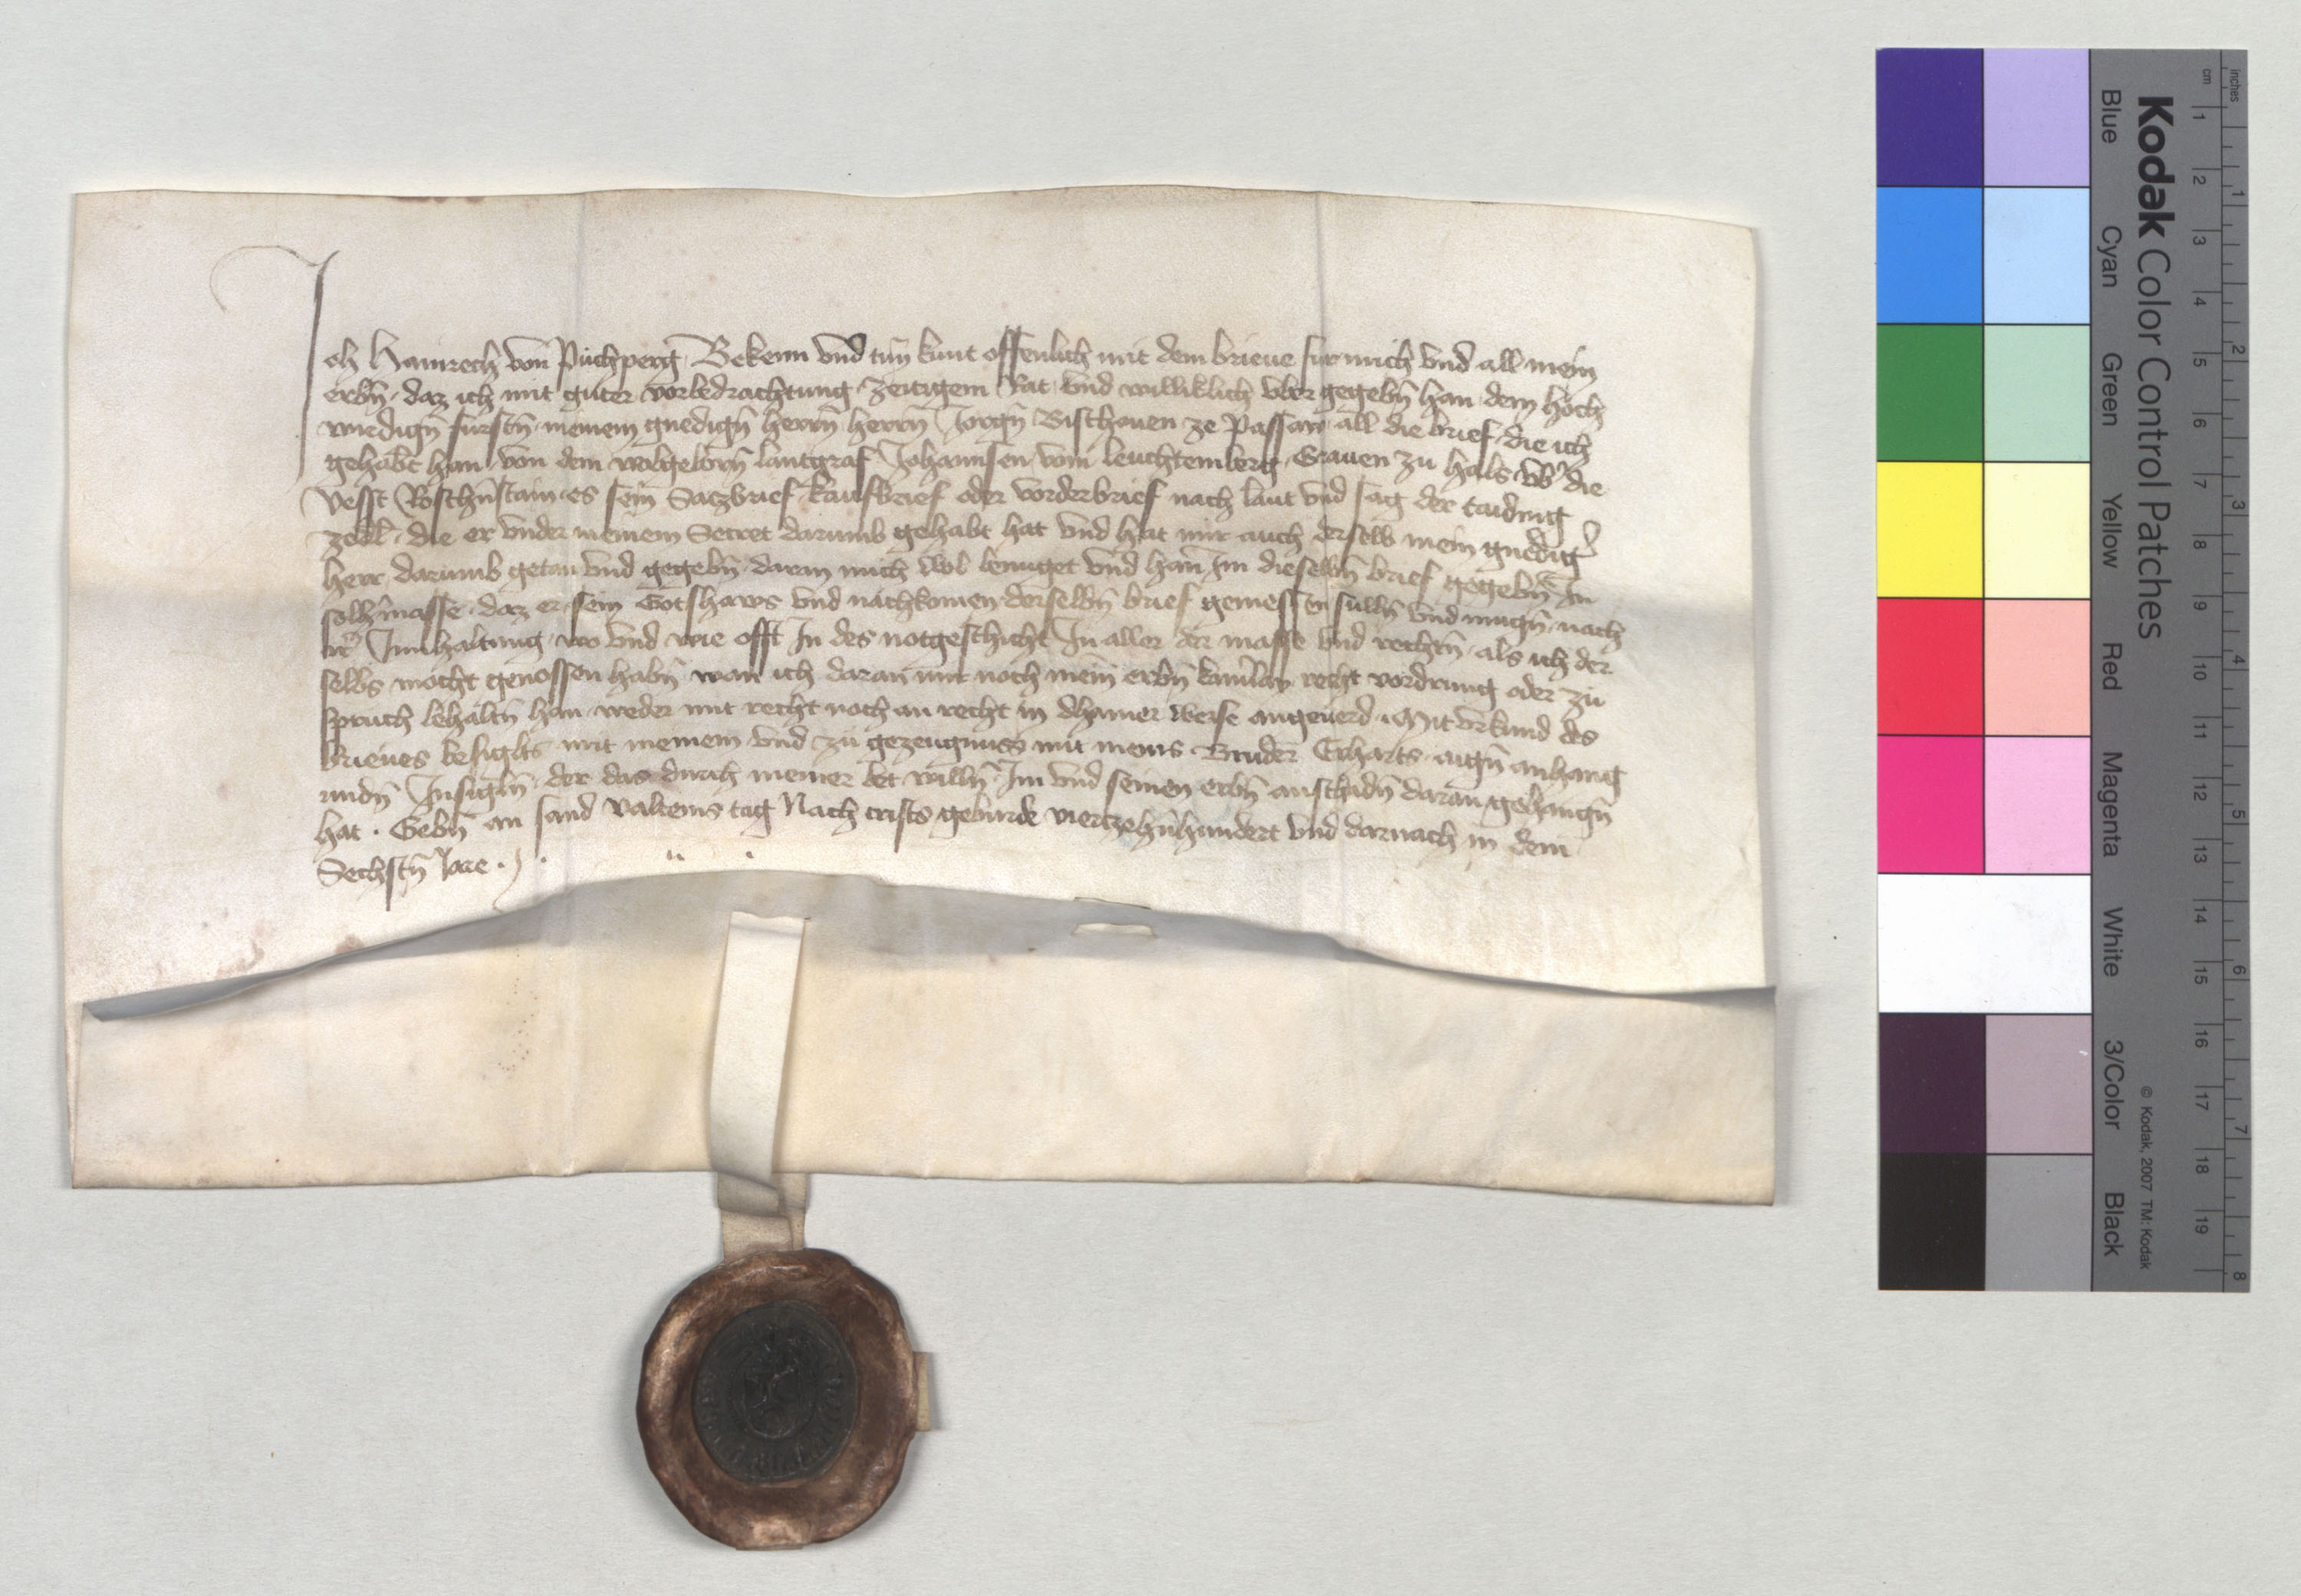 Ich Hainreich von Puchperg Bekenn vnd tun kunt offenlich mit dem brieue fur mich vnd all mein
erbn̄ daz ich mit guter vorbedrachtung zeitigem Rat vnd williklich vber gegebn̄ han dem hoch
wirdign̄ furstn̄ meinem gnedign̄ herrn̄ herrn̄ Jorgn̄ Bischouen ze Passaw all die brief die ich
gehabt han von dem wolgeborn̄ lantgraf Johannsen vom leuchtemberg Grauen zu hals vb̄ die
vesst Roschn̄stain es sein Satzbrief kaufbrief oder vorderbrief nach laut vnd sag der taiding
zedl̄ die er vnder meinem Secret darumb gehabt hat vnd hat mir auch derselb mein gnediḡ
herr darumb getan vnd gegebn̄ daran mich wol benuget vnd han Im dieselbn̄ brief gegebn̄ In
solh̄ masse daz er sein Gotshaws vnd nachkomen derselbn̄ brief geniessen sulln̄ vnd mugn̄ nach
ir̄ Innhaltung wo vnd wie offt In des notgeschicht In aller der masse vnd rechtn̄ als ich der
selbs mocht genossen habn̄ wan ich daran mir noch mein erbn̄ kainlay recht vordrung oder zu
spruch behaltn̄ han weder mit recht noch an recht in dhainer weise angeuerd Mit vrkund des
brieues besiglts mit meinem vnd zu gezeugnuss mit meins Bruder Erharts aign̄ anhang
undn̄ Insigln̄ der das durch meiner bet willn̄ Im vnd seinen erbn̄ anschadn̄ daran gehangn̄
hat . Gebn̄ an sand valteins tag Nach crists geburde viertzehn̄hundert vnd darnach in dem
Sechstn̄ Jare .
Kodak Color Control Patches
Blue Cyan Green Yellow Red Magenta White 3/Color Black
inches 1 2 3 4 5 6 7 8
cm 1 2 3 4 5 6 7 8 9 10 11 12 13 14 15 16 17 18 19
© Kodak, 2007 TM: Kodak